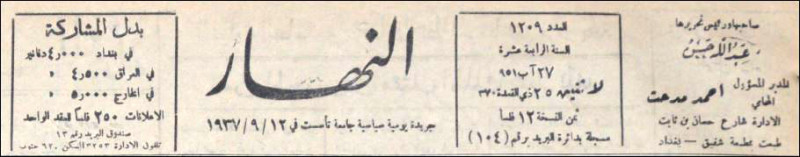 صاحبها ورئيس تحريرها
عبد الله حسين
المدير المسؤول
المحامي
احمد مدحت
الادارة شارع حسان بن ثابت
طبعت بمطبعة شفيق – بغداد
العدد ١٢٠٩
السنة الرابعة عشرة
٢٧ آب ٩٥١
الاثنين ٢٥ ذي القعدة ٣٧٠
ثمن النسخة ١٢ فلساً
مسجلة بدائرة البريد برقم (١٠٤)
النهار
جريدة يومية سياسية جامعة تأسست في ١٩٣٧/٩/١٢
بدل المشاركة
في بغداد ٤٫٠٠٠ دنانير
في العراق ٤٫٥٠٠ »
في الخارج ٥٫٠٠٠ »
الاعلانات ٢٥٠ فلساً للعقد الواحد
صندوق البريد رقم ١٣
تلفون الادارة ٣٢٥٣ السكن ٩٢٠ جنوب